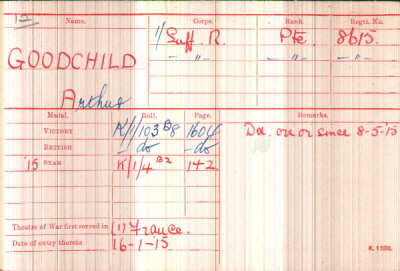 12 Name. Corps. Rank. Regtl. No.
1/ Suff. R. Pte. 8615.
GOODCHILD — " — — " — — " —
Arthur
Medal. Roll. Page. Remarks.
VICTORY K/1/103 B8 1604 Dd. on or since 8-5-15
BRITISH — do — do
'15 STAR K/1/4 B2 142
Theatre of War first served in (1) France.
Date of entry therein 16-1-15
K. 1380.